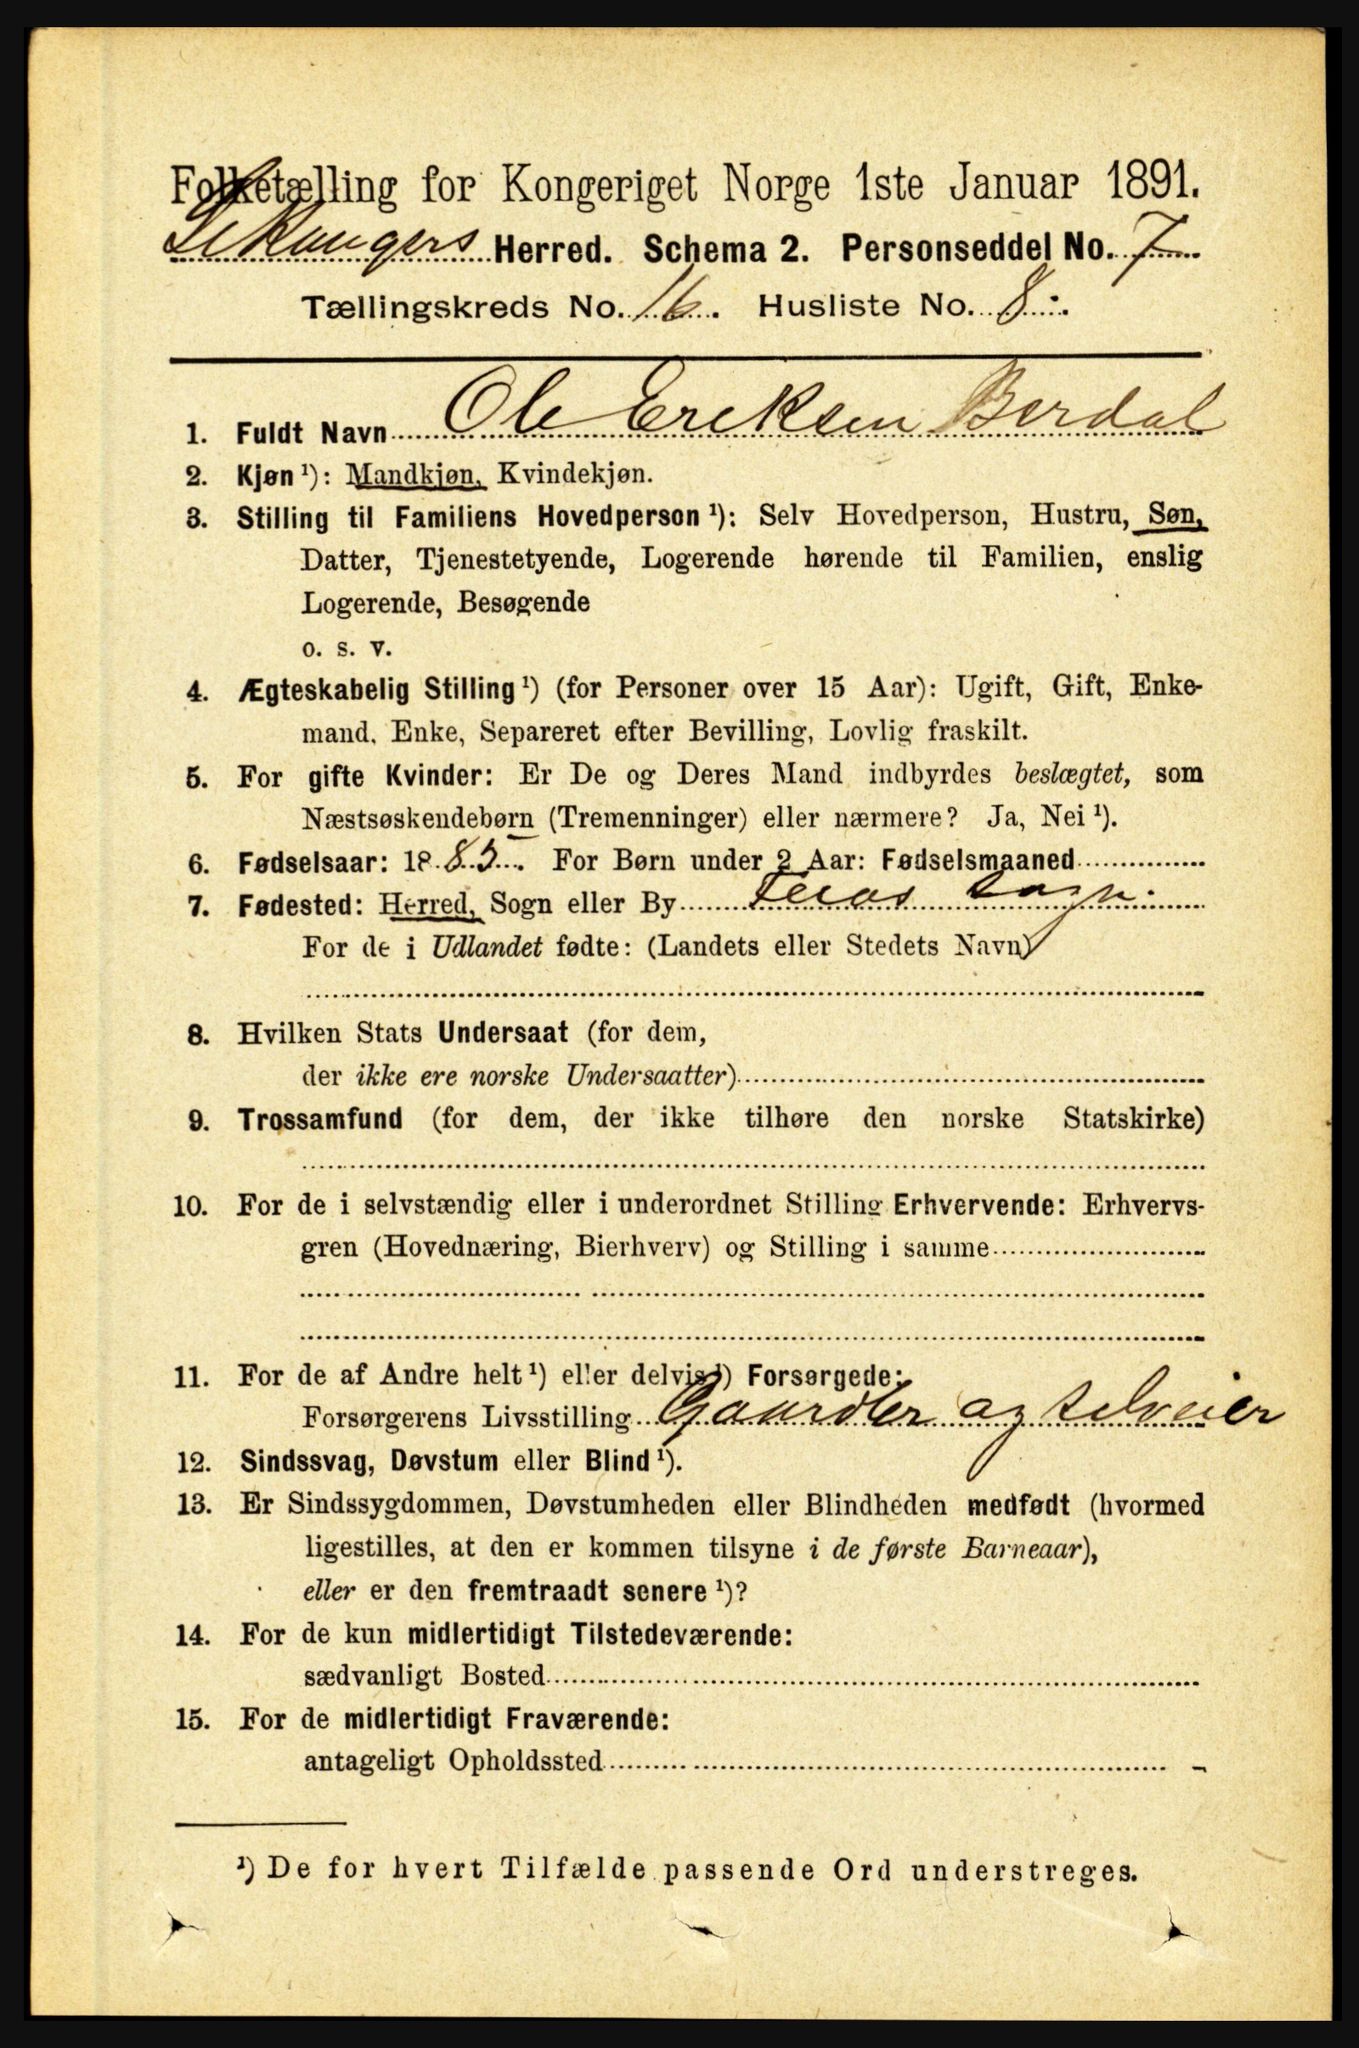 Folketælling for Kongeriget Norge 1ste Januar 1891.
Leikanger Herred. Schema 2. Personseddel No. 7
Tællingskreds No. 16. Husliste No. 8.
1. Fuldt Navn Ole Eriksen Berdal
2. Kjøn ¹): Mandkjøn, Kvindekjøn.
3. Stilling til Familiens Hovedperson ¹): Selv Hovedperson, Hustru, Søn,
Datter, Tjenestetyende, Logerende hørende til Familien, enslig
Logerende, Besøgende
o. s. v.
4. Ægteskabelig Stilling ¹) (for Personer over 15 Aar): Ugift, Gift, Enke-
mand, Enke, Separeret efter Bevilling, Lovlig fraskilt.
5. For gifte Kvinder: Er De og Deres Mand indbyrdes beslægtet, som
Næstsøskendebørn (Tremenninger) eller nærmere? Ja, Nei ¹).
6. Fødselsaar: 1885. For Børn under 2 Aar: Fødselsmaaned
7. Fødested: Herred, Sogn eller By Feios Sogn.
For de i Udlandet fødte: (Landets eller Stedets Navn)
8. Hvilken Stats Undersaat (for dem,
der ikke ere norske Undersaatter)
9. Trossamfund (for dem, der ikke tilhøre den norske Statskirke)
10. For de i selvstændig eller i underordnet Stilling Erhvervende: Erhvervs-
gren (Hovednæring, Bierhverv) og Stilling i samme
11. For de af Andre helt ¹) eller delvis ¹) Forsørgede:
Forsørgerens Livsstilling Gaardbr og selveier
12. Sindssvag, Døvstum eller Blind ¹).
13. Er Sindssygdommen, Døvstumheden eller Blindheden medfødt (hvormed
ligestilles, at den er kommen tilsyne i de første Barneaar),
eller er den fremtraadt senere ¹)?
14. For de kun midlertidigt Tilstedeværende:
sædvanligt Bosted
15. For de midlertidigt Fraværende:
antageligt Opholdssted
¹) De for hvert Tilfælde passende Ord understreges.